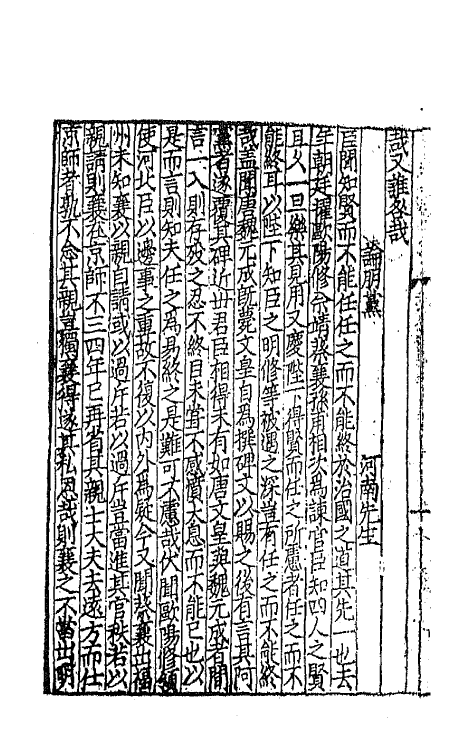 哉又誰咎哉
論朋黨 河南先生
臣聞知賢而不能任任之而不能終於治國之道其失一也去
年朝廷擢歐陽修余靖蔡襄孫甫相次為諫官臣知四人之賢
且久一旦樂其見用又慶陛下得賢而任之所慮者任之而不
能終耳以陛下知臣之明修等被遇之深豈有任之而不能終
哉盖聞唐魏元成旣薨文皇自為撰碑文以賜之後有言其阿
黨者遂覆其碑近世君臣相得未有如唐文皇與魏元成者間
言一入則存歿之忍不終臣未甞不感憤太息而不能已也以
是而言則知夫任之為易終之是難可不慮哉伏聞歐陽修領
使河北臣以邊事之重故不復以內外為疑今又聞蔡襄出福
州未知襄以親自請或以過斥若以過斥豈當進其官秩若以
親請則襄在京師不三四年已再省其親士大夫去遠方而仕
京師者孰不念其親豈獨襄得遂其私恩哉則襄之不當出明